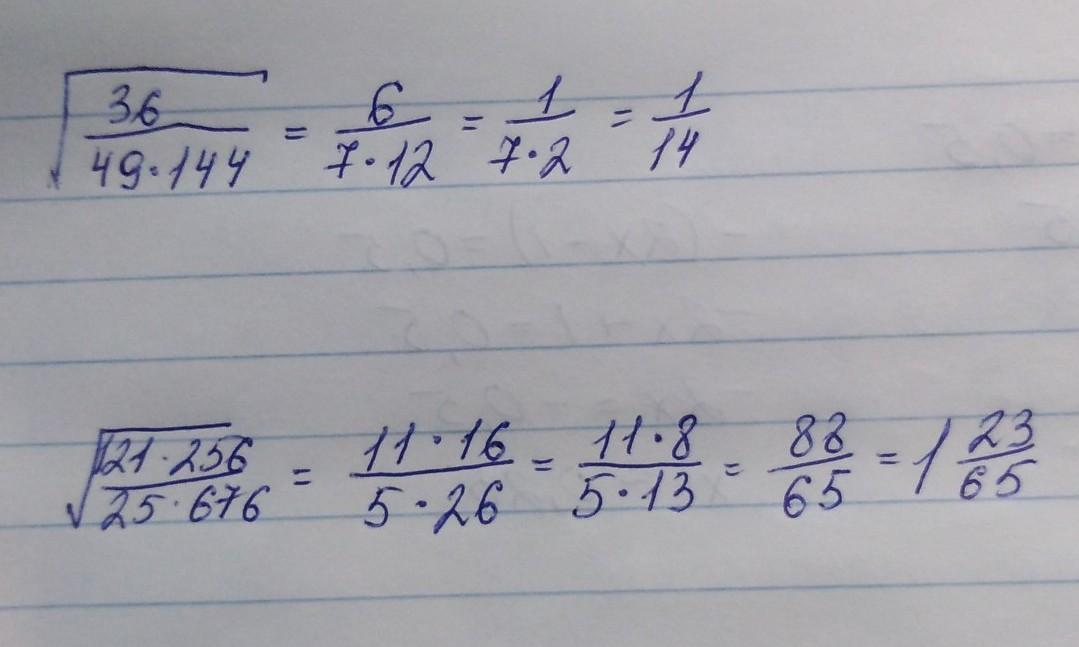 √(36/(49·144)) = 6/(7·12) = 1/(7·2) = 1/14
√(121·256/(25·676)) = (11·16)/(5·26) = (11·8)/(5·13) = 88/65 = 1 23/65